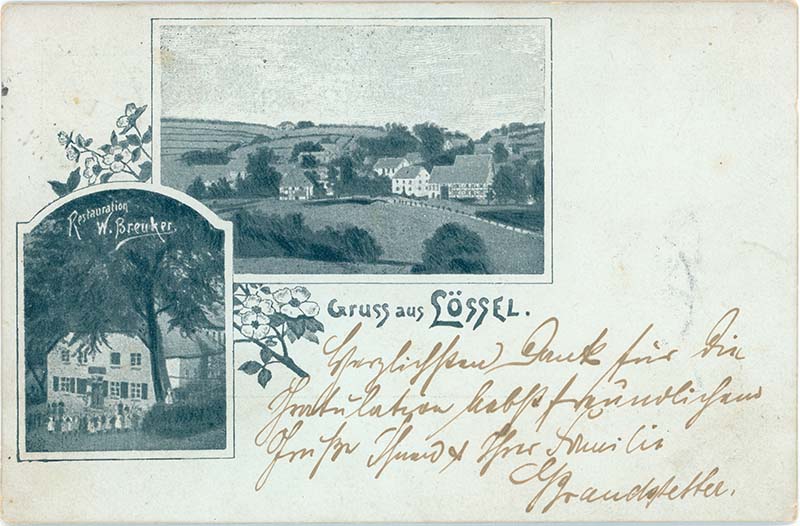 Restauration
W. Breuker
Gruss aus LÖSSEL.
Herzlichsten Dank für die
Gratulation nebst freundlichem
Gruße Ihnen & Ihrer Familie
Brandstetter.